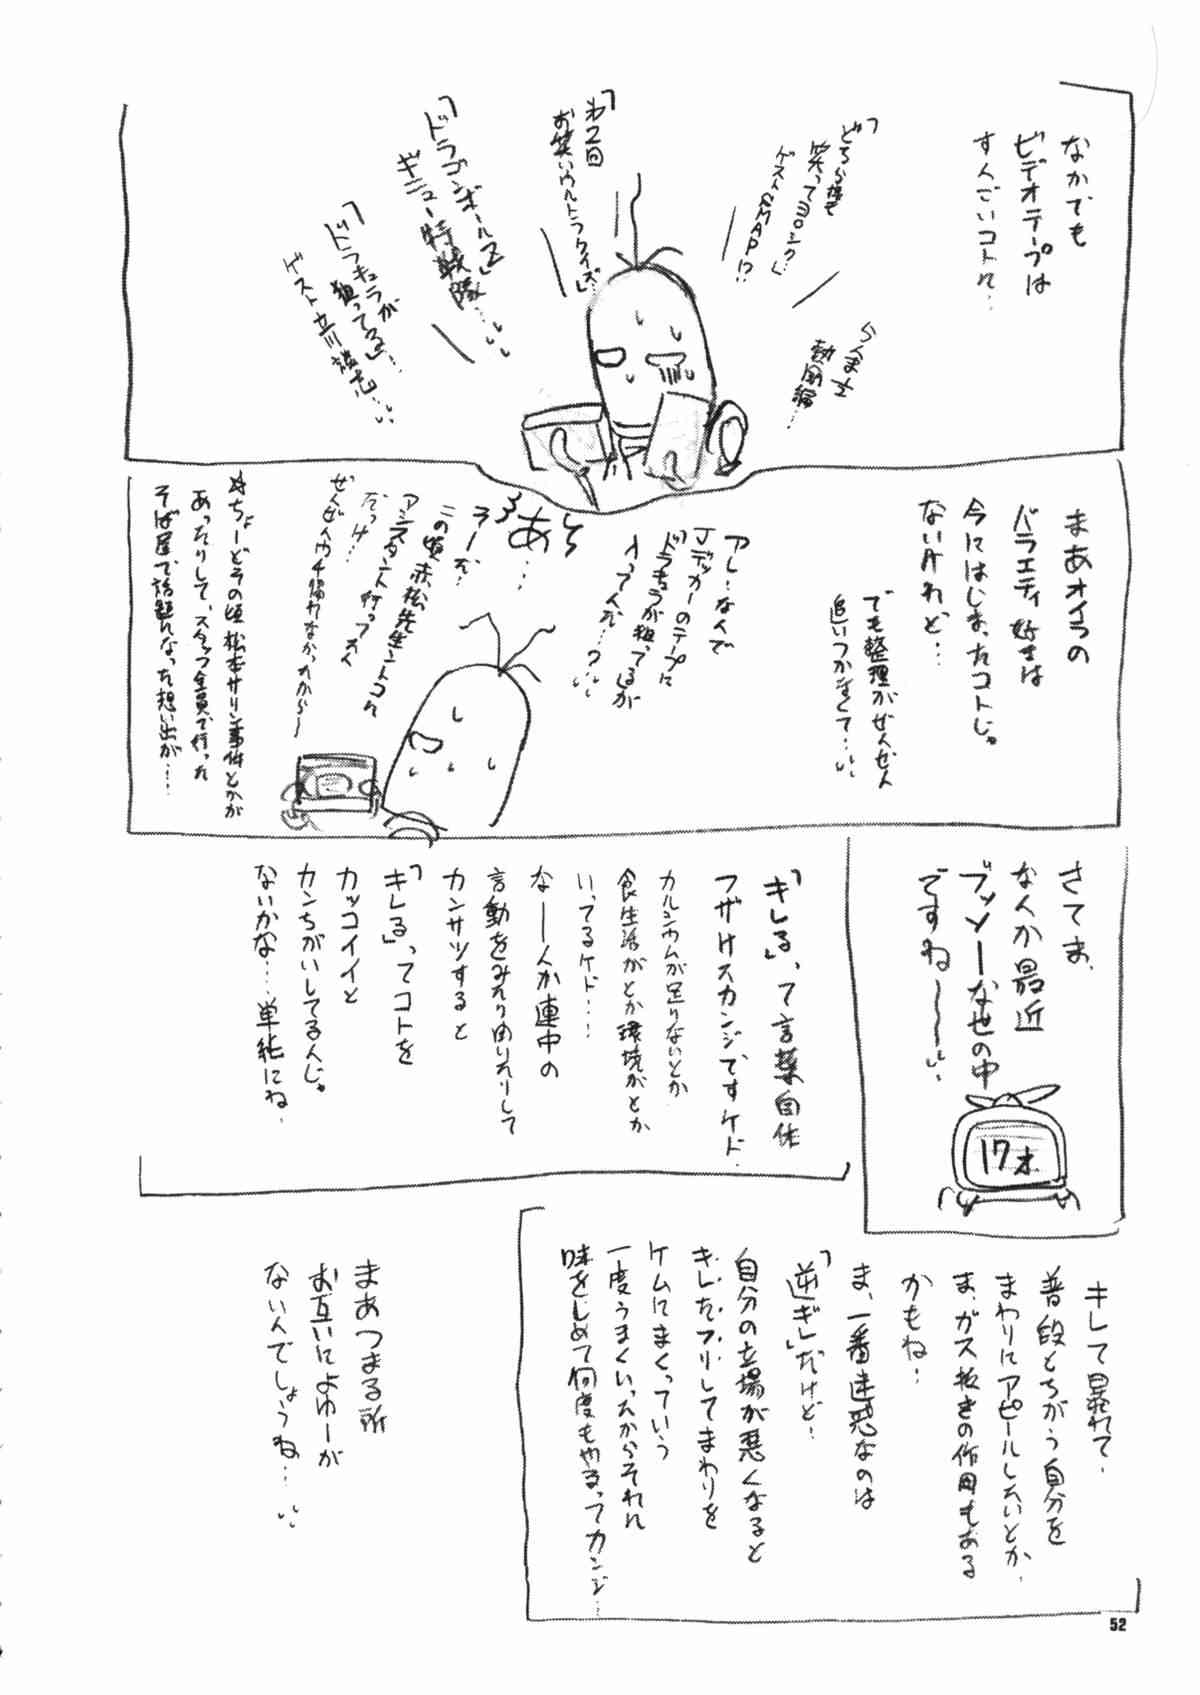 なかでも
ビデオテープは
すんごいコトに…
「どちら様も
笑ってヨロシク」…
ゲストSMAP!?
らんま½
熱闘編…
「第2回
お笑いウルトラクイズ」…
「ドラゴンボールZ」
ギニュー特戦隊…
「ドラキュラが
狙ってる」…
ゲスト立川談志…
まあオイラの
バラエティ好きは
今にはじまったコトじゃ
ないけれど…
でも整理がぜんぜん
追いつかなくて…
アレ…なんで
Jデッカーのテープに
「ドラキュラが狙ってる」が
入ってんだ…?
あ…
そーだ…
この頃赤松先生ントコに
アシスタント行ってん
だっけ…
ぜんぜんウチ帰れなかったから〜
ちょーどその頃松本サリン事件とかが
あったりして、スタッフ全員で行った
そば屋で話題んなった想い出が…
さてま、
なんか最近
ブッソーな世の中
ですね〜
17才
「キレる」って言葉自体
フザけたカンジですケド.
カルシウムが足りないとか
食生活がとか環境がとか
いってるケド…
なーんか連中の
言動をみたりきいたりして
カンサツすると
「キレる」ってコトを
カッコイイと
カンちがいしてるんじゃ
ないかな…単純にね.
キレて暴れて.
普段とちがう自分を
まわりにアピールしたいとか.
ま、ガス抜きの作用もある
かもね.
ま、一番迷惑なのは
「逆ギレ」だけど.
自分の立場が悪くなると
キレたフリしてまわりを
ケムにまくっていう
一度うまくいったからそれに
味をしめて何度もやるってカンジ…
まあつまる所
お互いによゆーが
ないんでしょうね…
52